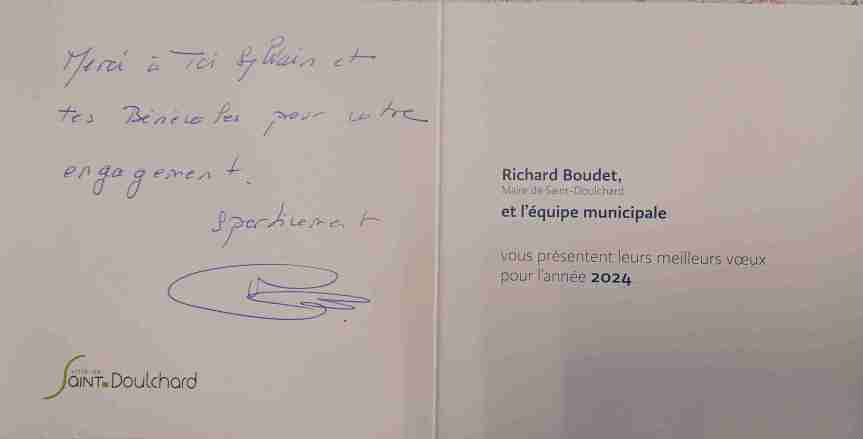 Merci à Toi Sylvain et
tes Bénévoles pour votre
engagement.
Sportivement
VILLE DE
SAINT-Doulchard
Richard Boudet,
Maire de Saint-Doulchard
et l'équipe municipale
vous présentent leurs meilleurs vœux
pour l'année 2024